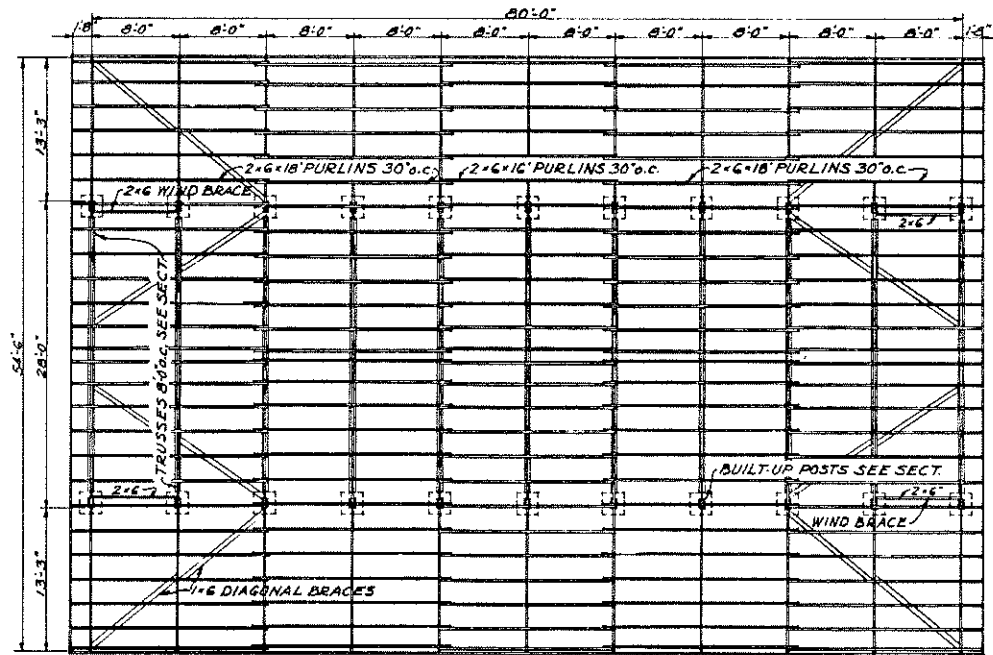 80'-0"
1'-8" 8'-0" 8'-0" 8'-0" 8'-0" 8'-0" 8'-0" 8'-0" 8'-0" 8'-0" 8'-0" 1'-8"
13'-3"
2×6×18' PURLINS 30" o.c. 2×6×16' PURLINS 30" o.c. 2×6×18' PURLINS 30" o.c.
2×6 WIND BRACE
2×6
54'-6"
28'-0"
TRUSSES 8'-0" o.c. SEE SECT.
BUILT-UP POSTS SEE SECT.
2×6
2×6
WIND BRACE
13'-3"
1×6 DIAGONAL BRACES